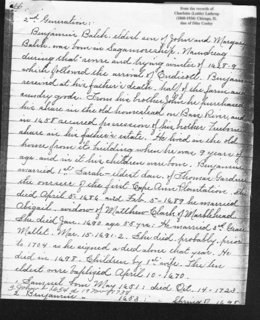 From the records of
Charlotte
Chicago, Il.
2nd Generation:
Benjamin Balch, eldest son of John and Margaret
Balch, was born in Naumkeag
during that severe and trying winter of 1628-9
which followed the arrival of Endicott. Benjamin
received at his father's death, half of the farm and
goods. From his brother John he purchased
his share in the old homestead on Bass River, and
in 1658 possession of his brother
share in his father's estate. He lived in the old
house from its building when he was 9 years of
age and in it his children were born. Benjamin
married 1st Sarah - eldest dau. of Thomas Gardner
the overseer of the first Cape Ann Plantation. She
died April 5, 1686 and Feb. 5-1689 he married
Abigail, widow of Matthew Clark of Marblehead
She died Jan. 1690 He married 3rd Grace
Mallot. Mar. 15-1691-2. She died, probably, prior
to 1704 as he signed a deed alone that year. He
died in Children by 1st wife. The ten
eldest were baptized April 10-1670.
1. Samuel born May 1651, died Oct. 14-1723.
2. Benjamin